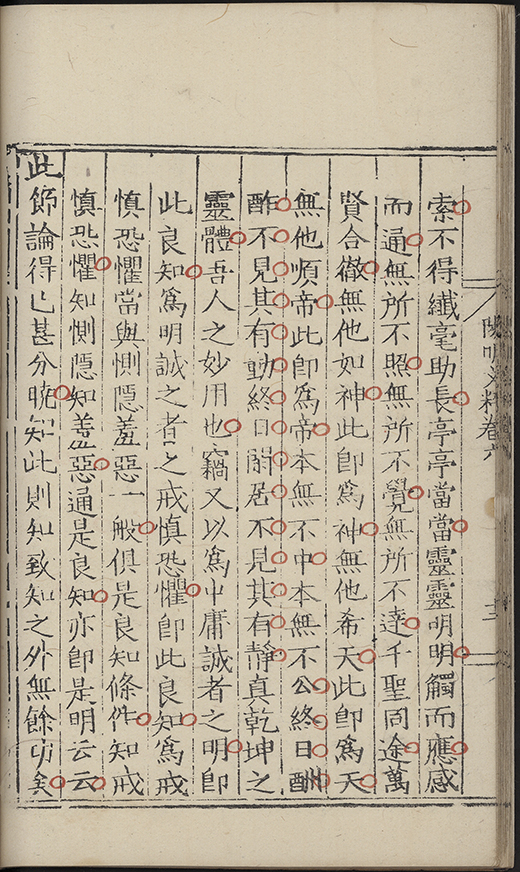 索不得纖毫助長亭亭當當靈靈明明觸而應感
而通無所不照無所不覺無所不達千聖同途萬
賢合徹無他如神此即爲神無他希天此即爲天
無他順帝此即爲帝本無不中本無不公終日酬
酢不見其有動終日閒居不見其有靜真乾坤之
靈體吾人之妙用也竊又以爲中庸誠者之明即
此良知爲明誠之者之戒慎恐懼即此良知爲戒
慎恐懼當與惻隱羞惡一般俱是良知條件知戒
慎恐懼知惻隱知羞惡通是良知亦即是明云云
此節論得已甚分曉知此則知致知之外無餘功矣
陽明文粹卷六
十二